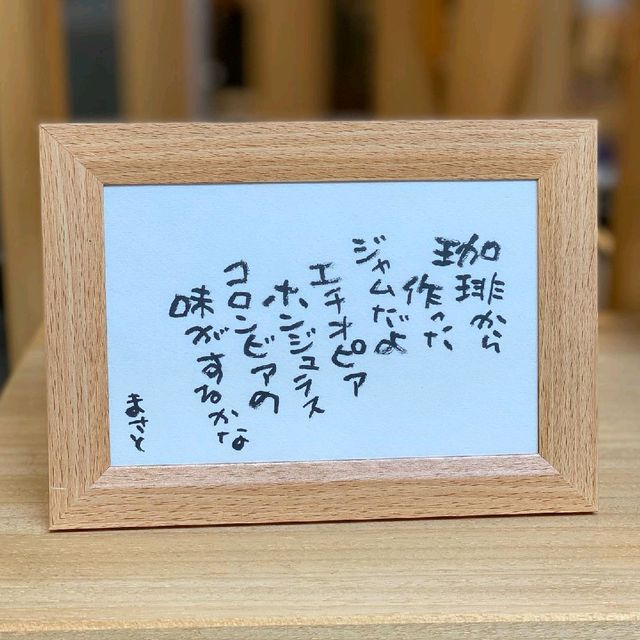 珈琲から
作った
ジャムだよ
エチオピア
ホンジュラス
コロンビアの
味がするかな
まさと